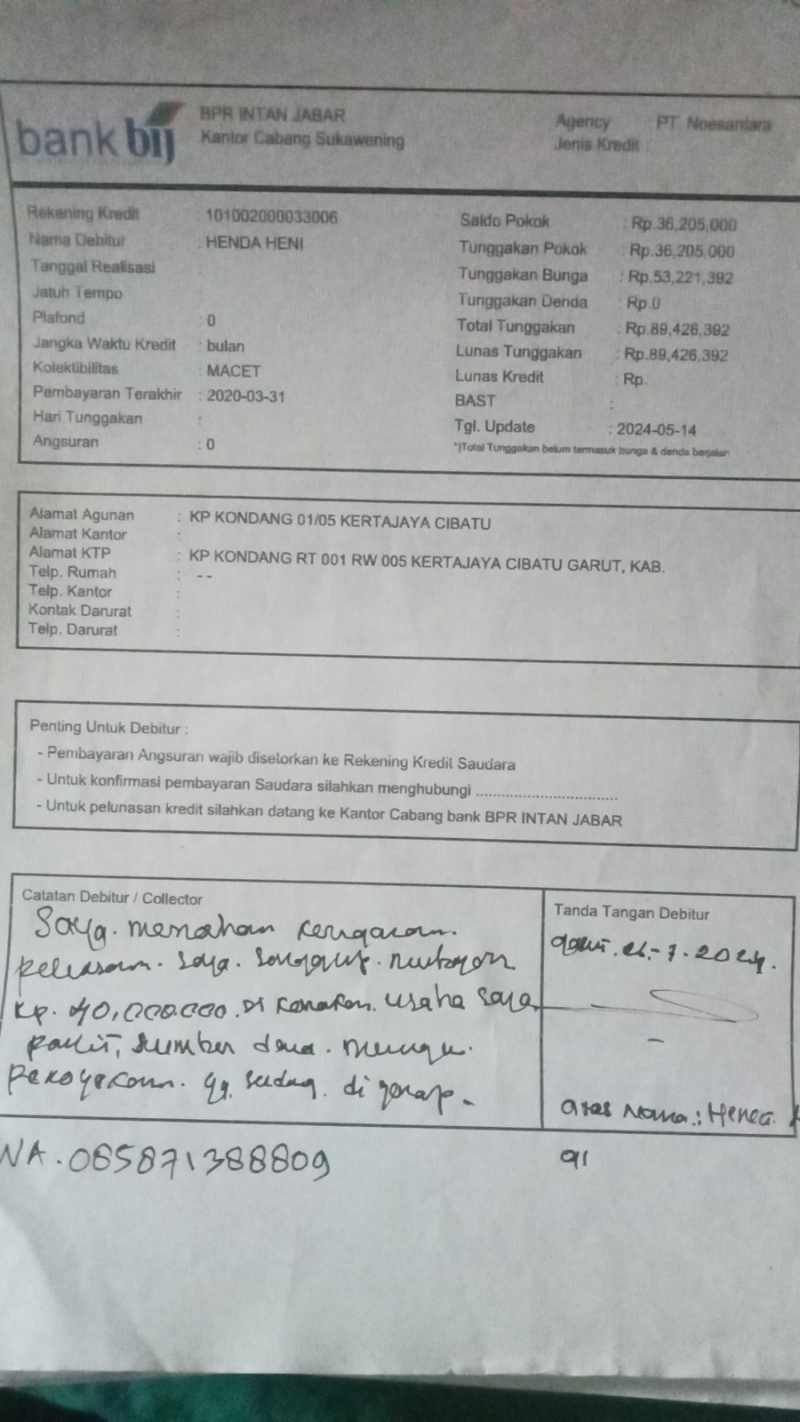 bank bij
BPR INTAN JABAR
Kantor Cabang Sukawening
Agency PT. Noesantara
Jenis Kredit :
Rekening Kredit : 101002000033006
Nama Debitur : HENDA HENI
Tanggal Realisasi :
Jatuh Tempo :
Plafond : 0
Jangka Waktu Kredit : bulan
Kolektibilitas : MACET
Pembayaran Terakhir : 2020-03-31
Hari Tunggakan :
Angsuran : 0
Saldo Pokok : Rp.36,205,000
Tunggakan Pokok : Rp.36,205,000
Tunggakan Bunga : Rp.53,221,392
Tunggakan Denda : Rp.0
Total Tunggakan : Rp.89,426,392
Lunas Tunggakan : Rp.89,426,392
Lunas Kredit : Rp.
BAST :
Tgl. Update : 2024-05-14
*)Total Tunggakan belum termasuk bunga & denda berjalan
Alamat Agunan : KP KONDANG 01/05 KERTAJAYA CIBATU
Alamat Kantor :
Alamat KTP : KP KONDANG RT 001 RW 005 KERTAJAYA CIBATU GARUT, KAB.
Telp. Rumah : --
Telp. Kantor :
Kontak Darurat :
Telp. Darurat :
Penting Untuk Debitur :
- Pembayaran Angsuran wajib disetorkan ke Rekening Kredit Saudara
- Untuk konfirmasi pembayaran Saudara silahkan menghubungi ................................
- Untuk pelunasan kredit silahkan datang ke Kantor Cabang bank BPR INTAN JABAR
Catatan Debitur / Collector
Saya. menahan
saya.
Rp. 40,000.000. Di usaha saya
sumber dana.
yg. sedang. di
Tanda Tangan Debitur
7.2024.
atas Nama.:
WA.085871388809